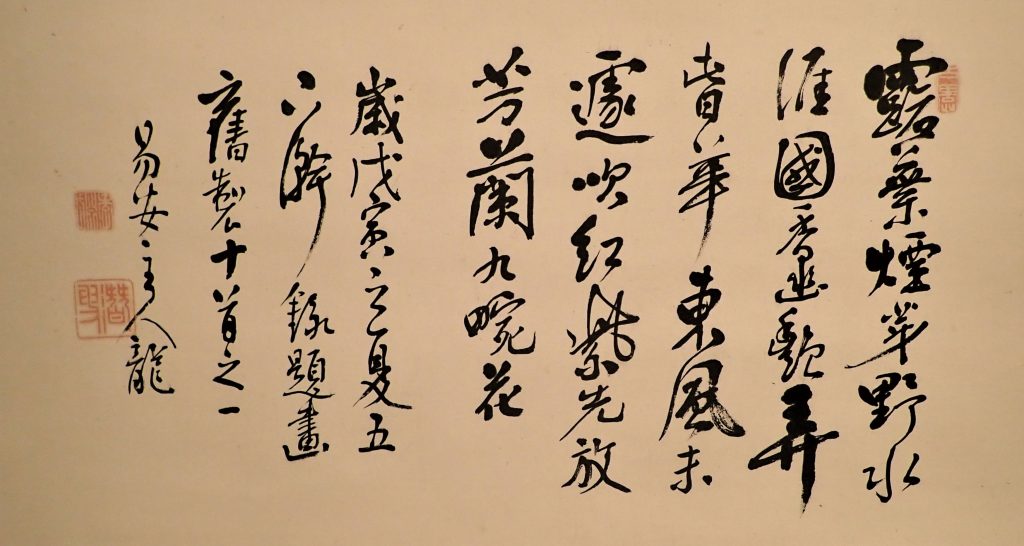 露葉煙莖野水
涯國香幽艷弄
旹華東風未
遽吹紅紫先放
芳蘭九畹花
歲戊寅之夏五
下澣錄題畫
舊製十首之一
易安主人龍